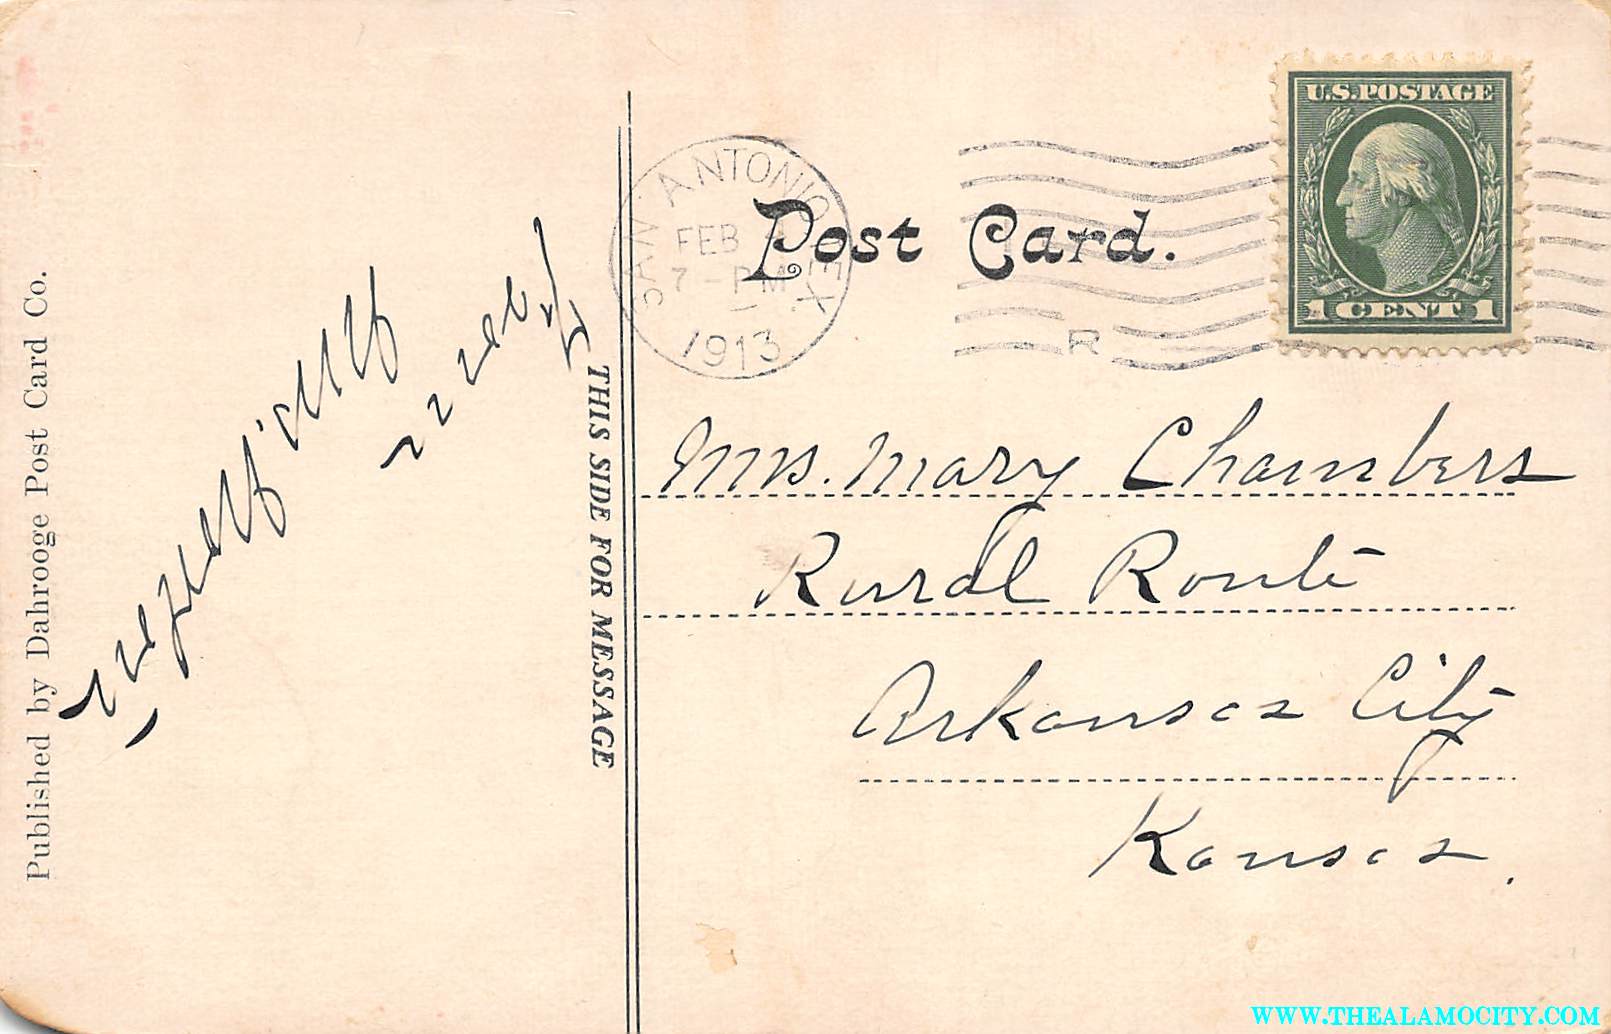 Published by Dahrooge Post Card Co.
THIS SIDE FOR MESSAGE
SAN ANTONIO TEX
FEB
7-PM
1913
R
U.S. POSTAGE
1 CENT 1
Post Card.
Mrs. Mary Chambers
Rural Route
Arkansas City
Kansas.
WWW.THEALAMOCITY.COM